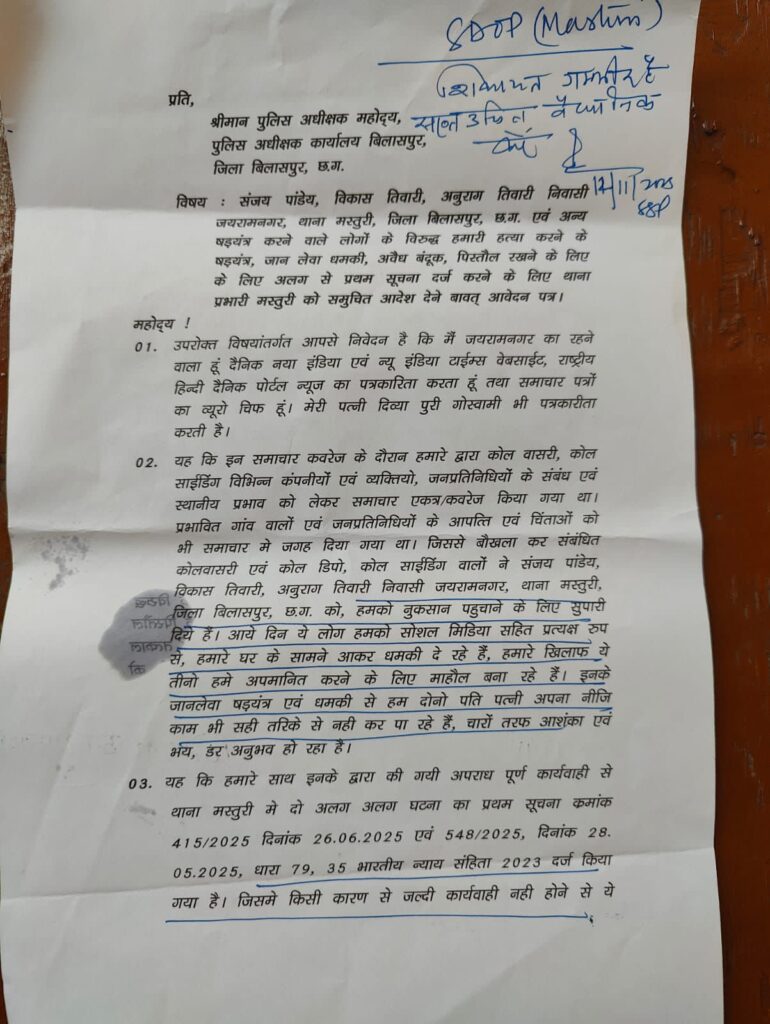 SDOP (Masturi)
शिकायत गम्भीर है
उचित वैधानिक
करें
12/11/2025
SSP
प्रति,
श्रीमान पुलिस अधीक्षक महोद्य,
पुलिस अधीक्षक कार्यालय बिलासपुर,
जिला बिलासपुर, छ.ग.
विषय : संजय पांडेय, विकास तिवारी, अनुराग तिवारी निवासी
जयरामनगर, थाना मस्तुरी, जिला बिलासपुर, छ.ग. एवं अन्य
षड़यंत्र करने वाले लोगों के विरुद्ध हमारी हत्या करने के
षड़यंत्र, जान लेवा धमकी, अवैध बंदूक, पिस्तौल रखने के लिए
के लिए अलग से प्रथम सूचना दर्ज करने के लिए थाना
प्रभारी मस्तुरी को समुचित आदेश देने बावत् आवेदन पत्र।
महोद्य !
01. उपरोक्त विषयांतर्गत आपसे निवेदन है कि मैं जयरामनगर का रहने
वाला हूं दैनिक नया इंडिया एवं न्यू इंडिया टाईम्स वेबसाईट, राष्ट्रीय
हिन्दी दैनिक पोर्टल न्यूज का पत्रकारिता करता हूं तथा समाचार पत्रों
का व्यूरो चिफ हूं। मेरी पत्नी दिव्या पुरी गोस्वामी भी पत्रकारीता
करती है।
02. यह कि इन समाचार कवरेज के दौरान हमारे द्वारा कोल वासरी, कोल
साईडिंग विभिन्न कंपनीयों एवं व्यक्तियो, जनप्रतिनिधियों के संबंध एवं
स्थानीय प्रभाव को लेकर समाचार एकत्र/कवरेज किया गया था।
प्रभावित गांव वालों एवं जनप्रतिनिधियों के आपत्ति एवं चिंताओं को
भी समाचार मे जगह दिया गया था। जिससे बौखला कर संबंधित
कोलवासरी एवं कोल डिपो, कोल साईडिंग वालों ने संजय पांडेय,
विकास तिवारी, अनुराग तिवारी निवासी जयरामनगर, थाना मस्तुरी,
जिला बिलासपुर, छ.ग. को, हमको नुकसान पहुचाने के लिए सुपारी
दिये हैं। आये दिन ये लोग हमको सोशल मिडिया सहित प्रत्यक्ष रुप
से, हमारे घर के सामने आकर धमकी दे रहे हैं, हमारे खिलाफ ये
तीनो हमे अपमानित करने के लिए माहौल बना रहे हैं। इनके
जानलेवा षड़यंत्र एवं धमकी से हम दोनो पति पत्नी अपना नीजि
काम भी सही तरिके से नही कर पा रहे हैं, चारों तरफ आशंका एवं
भय, डर अनुभव हो रहा है।
03. यह कि हमारे साथ इनके द्वारा की गयी अपराध पूर्ण कार्यवाही से
थाना मस्तुरी मे दो अलग अलग घटना का प्रथम सूचना क्रमांक
415/2025 दिनांक 26.06.2025 एवं 548/2025, दिनांक 28.
05.2025, धारा 79, 35 भारतीय न्याय संहिता 2023 दर्ज किया
गया है। जिसमे किसी कारण से जल्दी कार्यवाही नही होने से ये